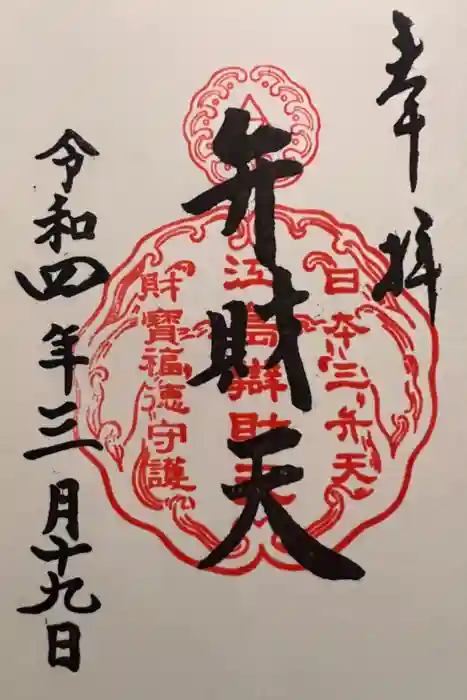 奉拝
日本三弁天
弁財天
江島辨財天
財寶福徳守護
令和四年三月十九日